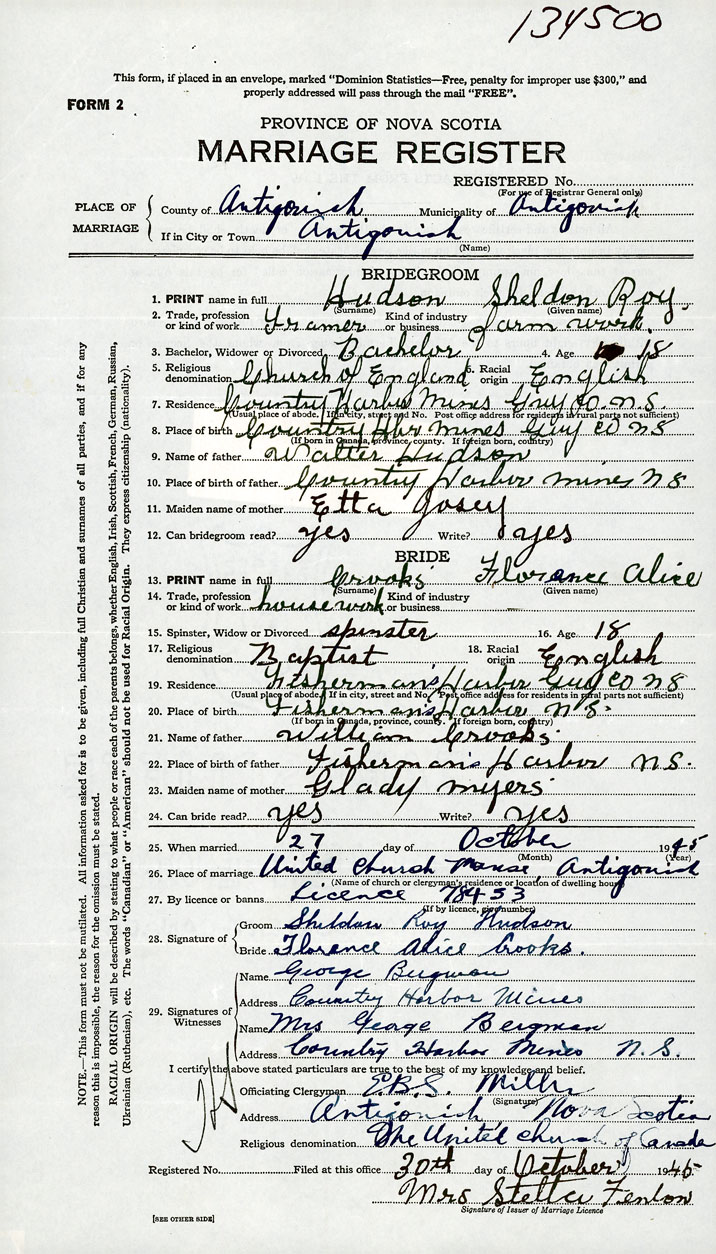 134500
This form, if placed in an envelope, marked "Dominion Statistics—Free, penalty for improper use $300," and
properly addressed will pass through the mail "FREE".
FORM 2
PROVINCE OF NOVA SCOTIA
MARRIAGE REGISTER
REGISTERED No.
(For use of Registrar General only)
PLACE OF MARRIAGE
County of Antigonish Municipality of Antigonish
If in City or Town Antigonish
(Name)
BRIDEGROOM
1. PRINT name in full Hudson Sheldon Roy
(Surname) (Given name)
2. Trade, profession or kind of work Framer Kind of industry or business farm work.
3. Bachelor, Widower or Divorced Bachelor 4. Age 18
5. Religious denomination Church of England 6. Racial origin English
7. Residence Country Harbor Mines Guy Co. N.S.
(Usual place of abode. If in city, street and No. Post office address for residents in rural parts not sufficient)
8. Place of birth Country Hbr mines Guy co NS
(If born in Canada, province, county. If foreign born, country)
9. Name of father Walter Hudson
10. Place of birth of father Country Harbor mines NS
11. Maiden name of mother Etta Josey
12. Can bridegroom read? yes Write? yes
BRIDE
13. PRINT name in full Crooks Florance Alice
(Surname) (Given name)
14. Trade, profession or kind of work housework Kind of industry or business —
15. Spinster, Widow or Divorced spinster 16. Age 18
17. Religious denomination Baptist 18. Racial origin English
19. Residence Fisherman's Harbor Guy co NS
(Usual place of abode. If in city, street and No. Post office address for residents in rural parts not sufficient)
20. Place of birth Fisherman's Harbor N.S.
(If born in Canada, province, county. If foreign born, country)
21. Name of father William Crooks
22. Place of birth of father Fisherman's Harbor N.S.
23. Maiden name of mother Glady myers
24. Can bride read? yes Write? yes
25. When married 27 day of October 1945
(Month) (Year)
26. Place of marriage United Church Manse, Antigonish
(Name of church or clergyman's residence or location of dwelling house)
27. By licence or banns Licence 78453
(If by licence, give number)
28. Signature of
Groom Sheldon Roy Hudson
Bride Florance Alice Crooks.
29. Signatures of Witnesses
Name George Bergman
Address Country Harbor Mines
Name Mrs George Bergman
Address Country Harbor Mines N.S.
I certify the above stated particulars are true to the best of my knowledge and belief.
Officiating Clergyman E.B.S. Miller
(Signature)
Address Antigonish, Nova Scotia
Religious denomination The United Church of Canada
Registered No. Filed at this office 30th day of October 1945
Mrs Stella Fenton
Signature of Issuer of Marriage Licence
[SEE OTHER SIDE]
NOTE.—This form must not be mutilated. All information asked for is to be given, including full Christian and surnames of all parties, and if for any
reason this is impossible, the reason for the omission must be stated.
RACIAL ORIGIN will be described by stating to what people or race each of the parents belongs, whether English, Irish, Scottish, French, German, Russian,
Ukrainian (Ruthenian), etc. The words "Canadian" or "American" should not be used for Racial Origin. They express citizenship (nationality).